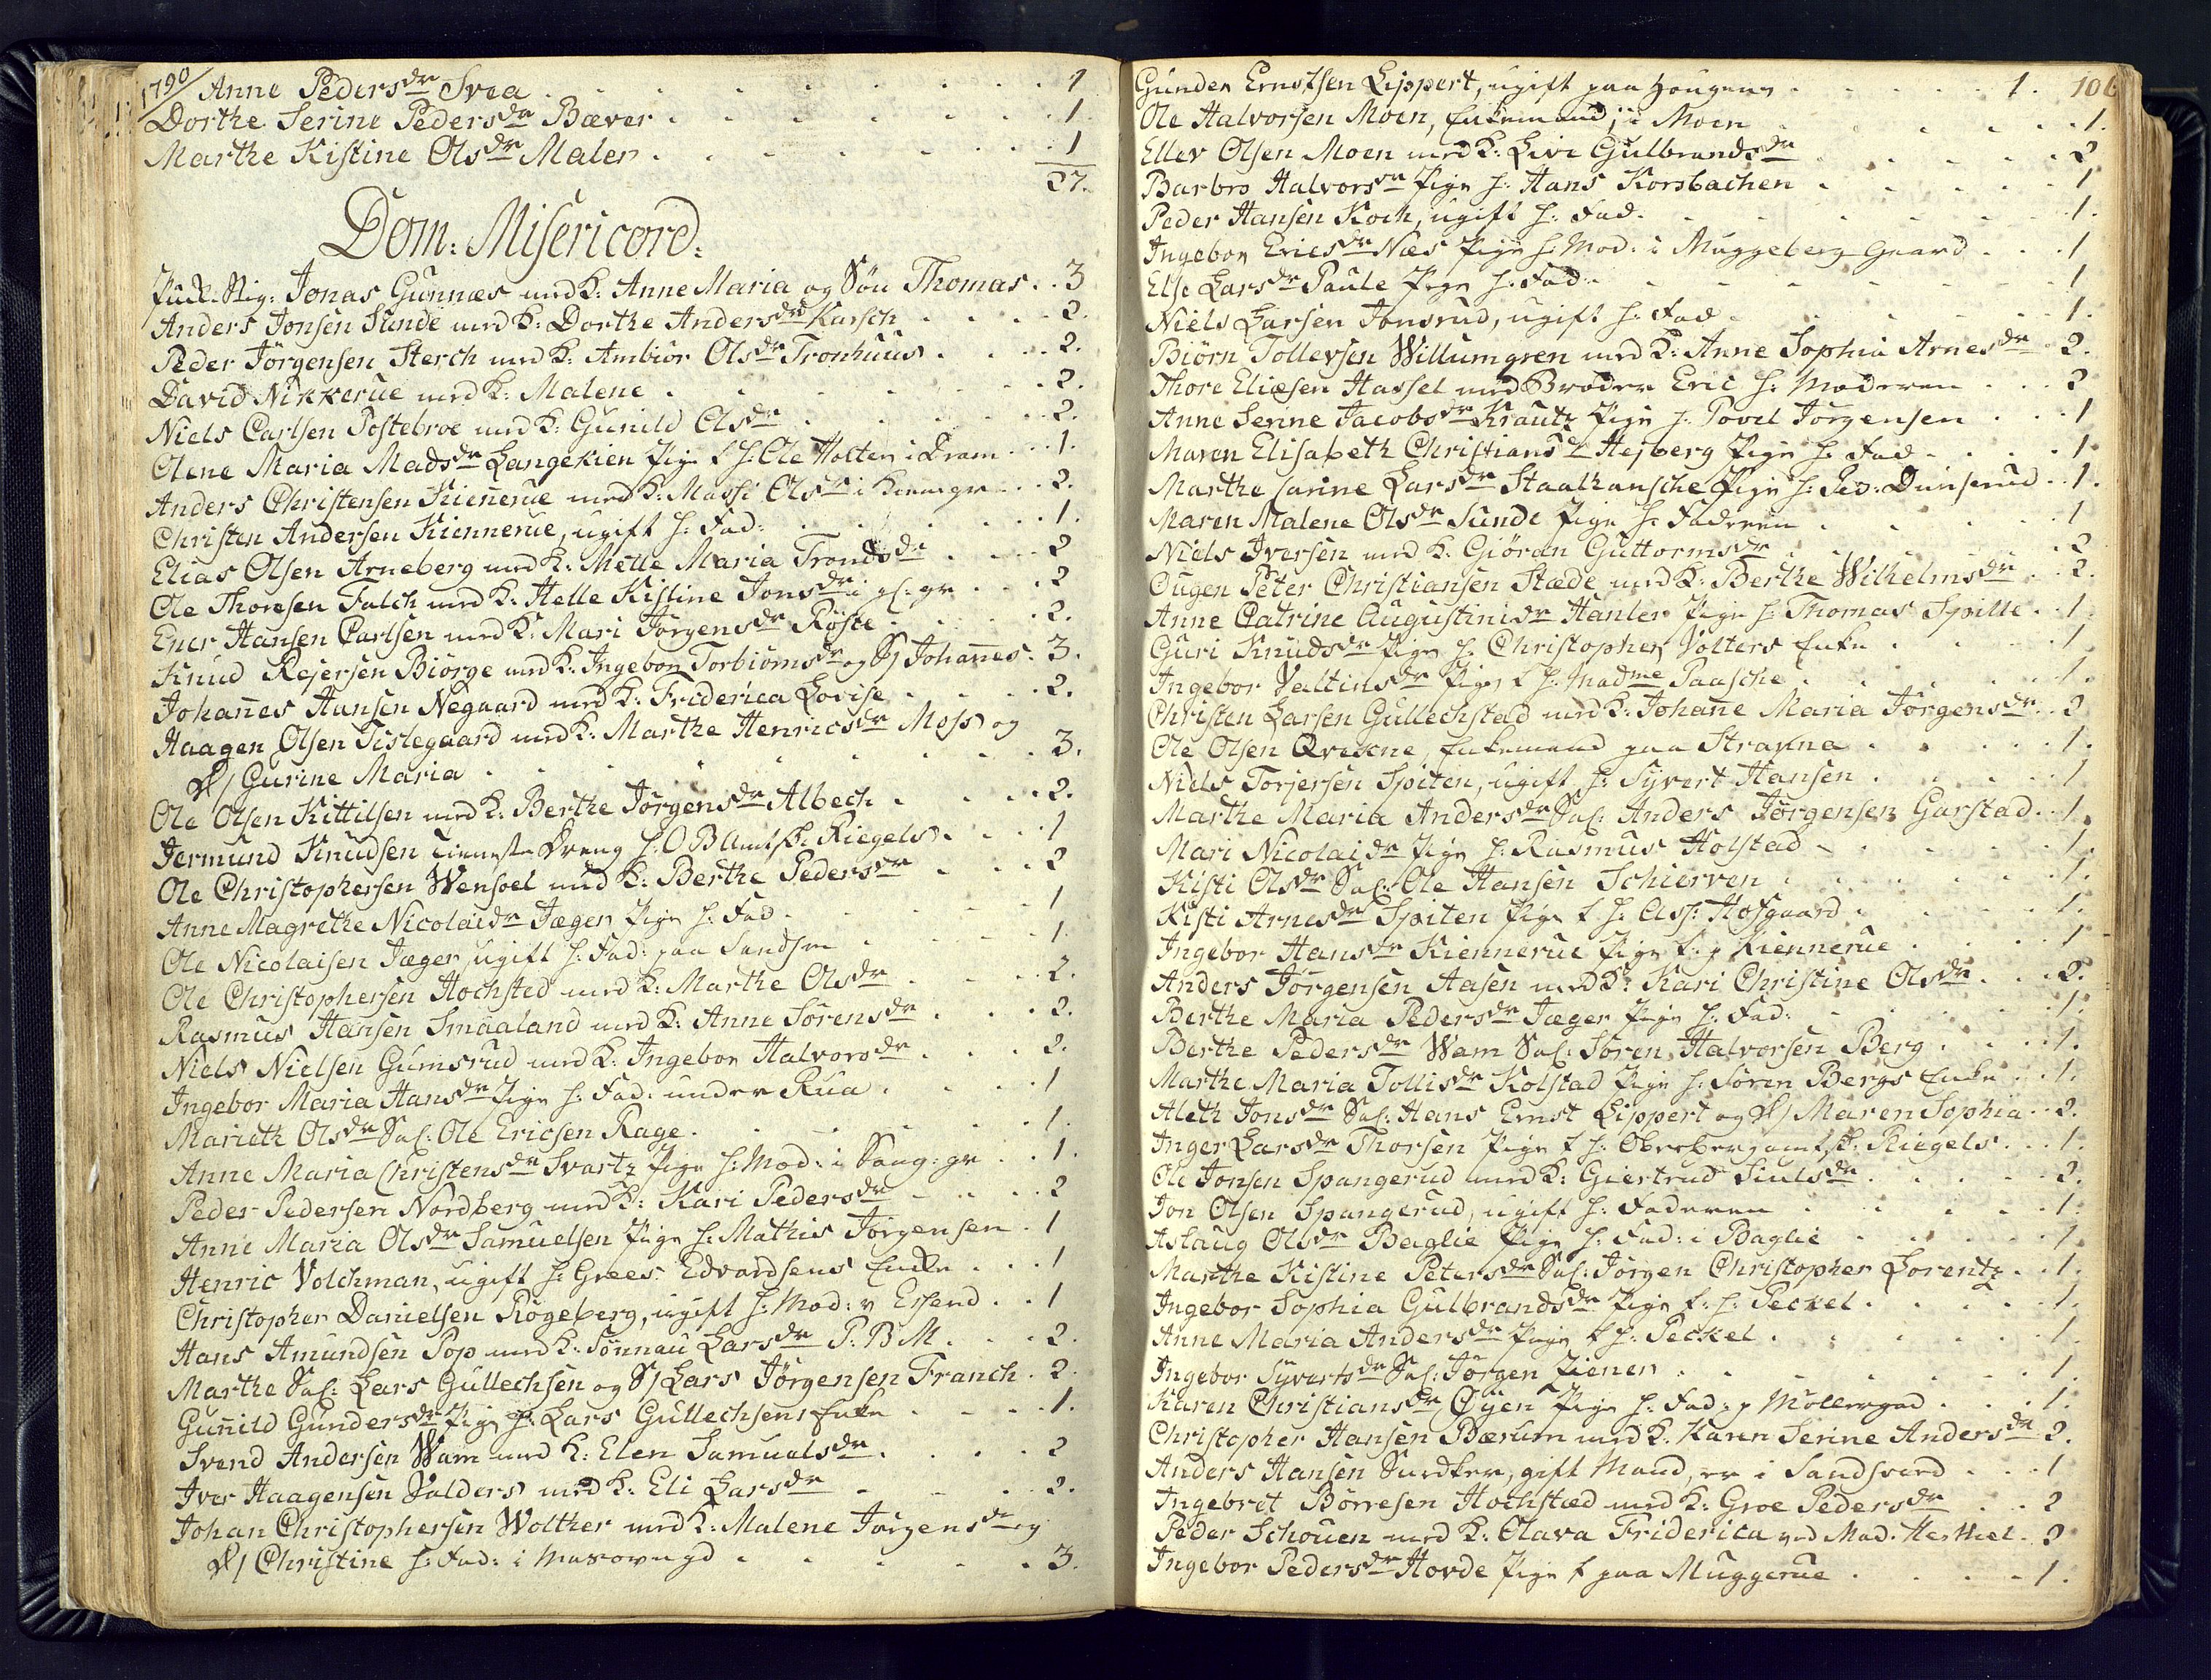 1790
Anne Pedersdr Svea 1
Dorthe Serine Pedersdr Bæver 1
Marthe Kistine Olsdr Maler 1
27.
Dom: Misericord:
Jonas Gunnæs med K: Anne Maria og Søn Thomas 3
Anders Jonsen Sunde med K: Dorthe Andersdr Karsch 2.
Peder Jörgensen Sterch med K: Ambiör Olsdr Tronhuus 2.
David Nikkerue med K: Malene 2.
Niels Carlsen Postebroe med K: Gunild Olsdr 2.
Olene Maria Madsdr Langekien Pige t h: Ole Holter i Dram 1.
Anders Christensen Kiennerue med K: Massi Olsdr i 2.
Christen Andersen Kiennerue, ugift h: Fad: 1.
Elias Olsen Arneberg med K: Mette Maria Trondsdr 2
Ole Thoresen Falch med K: Helle Kistine Jonsdr i gl: gr 2
Ener Hansen Carlsen med K: Mari Jörgensdr Röste 2.
Knud Rejersen Biörge med K: Ingebor Torbiörnsdr og S/ Johannes 3.
Johannes Hansen Negaard med K: Friderica Lovise 2.
Haagen Olsen Tislegaard med K: Marthe Henricsdr Moss og
D/ Gurine Maria 3.
Ole Olsen Kittilsen med K: Berthe Jörgensdr Albech 2.
Jermund Knudsen tieneste Dreng h: O B Amtsk: Riegels 1
Ole Christophersen Wensoel med K: Berthe Pedersdr 2
Anne Magrethe Nicolaidr Jæger Pige h: Fad 1
Ole Nicolaisen Jæger ugift h: Fad: paa 1.
Ole Christophersen Hochsted med K: Marthe Olsdr 2.
Rasmus Hansen Smaaland med K: Anne Sörensdr 2.
Niels Nielsen Gumsrud med K: Ingebor Halvorsdr 2.
Ingebor Maria Hansdr Pige h: Fad: under Rua 1
Marieth Olsdr Sal: Ole Ericsen Rage 1.
Anne Maria Christensdr Svartz Pige h: Mod: i Saug: gr 1.
Peder Pedersen Nordberg med K: Kari Pedersdr 2
Anne Maria Olsdr Samuelsen Pige h: Mathis Jörgensen 1
Henric Volchman, ugift h: Grees: Edvardsens Enke 1
Christopher Danielsen Rögeberg, ugift h: Mod: 1
Hans Amundsen Sop med K: Sönnau Larsdr P. B M. 2.
Marthe Sal: Lars Gullechsen og S/ Lars Jörgensen Franch 2.
Gunild Gundersdr Pige h: Lars Gullechsens Enke 1.
Svend Andersen Wam med K: Elen Samuelsdr 2
Iver Haagensen Valders med K: Eli Larsdr 2.
Johan Christophersen Wolther med K: Malene Jörgensdr og
D/ Christine h: Fad: i 3.
106
Gunder Ernstsen Lippert, ugift paa Haugene 1.
Ole Halvorsen Moen, Enkemand, i Moen 1.
Ellev Olsen Moen med K: Live Gulbrandsdr 2
Barbro Halvorsdr Pige h: Hans Korsbachen 1
Peder Hansen Koch, ugift h: Fad. 1.
Ingebor Ericsdr Næs Pige h: Mod: i Muggeberg Gaard 1
Else Larsdr Paule Pige h: Fad: 1
Niels Larsen Jonsrud, ugift h: Fad 1.
Biörn Tollevsen Willumgren med K: Anne Sophia Arnesdr 2.
Thore Eliæsen Hassel med Broder Eric h: Moderen 2
Anne Serine Jacobsdr Krautz Pige h: Povel Jörgensen 1
Maren Elisabeth Christiansdr Hesberg Pige h: Fad 1.
Marthe Carine Larsdr Staalhansche Pige h: Ped: Dunserud 1.
Maren Malene Olsdr Sunde Pige h: Faderen 1
Niels Iversen med K: Giöran Guttormsdr 2
Ougen Peter Christiansen Stæde med K: Berthe Wilhelmsdr 2.
Anne Catrine Augustinisdr Hanler Pige h: Thomas Spille 1.
Guri Knudsdr Pige h: Christopher Volters Enke 1
Ingebor Valtinsdr Pige t h: Madme Paasche 1.
Christen Larsen Gullechstad med K: Johane Maria Jörgensdr 2
Ole Olsen Qvekne, Enkemand paa Strakna 1.
Niels Torjersen Spiten, ugift h: Syvert Hansen 1
Marthe Maria Andersdr Sal: Anders Jörgensen Garstad 1.
Mari Nicolaidr Pige h: Rasmus Holstad 1.
Kisti Olsdr Sal: Ole Hansen Schierven 1.
Kisti Arnesdr Spiten Pige t h: Ass: Hofgaard 1.
Ingebor Hansdr Kiennerue Pige t. p Kiennerue 1
Anders Jörgensen Aasen med K: Kari Christine Olsdr 2.
Berthe Maria Pedersdr Jæger Pige h: Fad: 1.
Berthe Pedersdr Wam Sal: Sören Halvorsen Berg 1.
Marthe Maria Tollisdr Kolstad Pige h: Sören Bergs Enke 1.
Aleth Jonsdr Sal: Hans Ernst Lippert og D/ Maren Sophia 2.
Inger Larsdr Thorsen Pige t h: Oberbergamtsk: Riegels 1.
Ole Jonsen Spangerud med K: Giertrud Siulsdr 2.
Jon Olsen Spangerud, ugift h: Faderen 1.
Aslaug Olsdr Baglie Pige h: Fad: i Baglie 1
Marthe Kistine Petersdr Sal: Jörgen Christopher Lorentz 1.
Ingebor Sophia Gulbrandsdr Pige t: h: Peckel 1.
Anne Maria Andersdr Pige t h: Peckel 1.
Ingebor Syvertsdr Sal: Jörgen Ziener 1.
Karen Christiansdr Öyen Pige h: Fad: p Möllergad 1.
Christopher Hansen Bærum med K: Karen Serine Andersdr 2.
Anders Hansen Surdker, gift Mand, er i Sandsværd 1
Ingebret Börresen Hochstæd med K: Groe Pedersdr 2
Peder Schouen med K: Olava Friderica ved Mad. 2
Ingebor Pedersdr Hovde Pige t paa Muggerue 1.